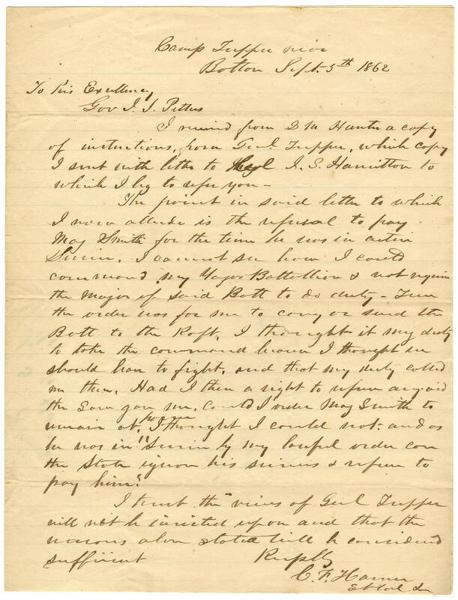 Camp Tupper near
Bolton Sept. 5th 1862
To his Excellency
Gov J. J. Pettus
I received from D M Hante a copy
of instructions, from Genl Tupper, which copy
I sent with letter to J. S. Hamilton to
which I beg to refer you —
The point in said letter to which
I now allude is the refusal to pay
Maj Smith for the time he was in active
Service. I cannot see how I could
command my Battallion & not require
the Major of said Batt to do duty —
the order was for me to carry or send the
Batt to the Raft, I thought it my duty
to take the command because I thought we
should have to fight, and that my duty called
me there. Had I then a right to refuse
the Gov gave me, could I order Maj Smith to
remain at home, I thought I could not: and as
he was in "Service" by my lawful order can
the State ignore his services & refuse to
pay him?
I trust the views of Genl Tupper
will not be insisted upon and that the
reasons above stated will be considered
sufficient Respty
C. F. Hamer